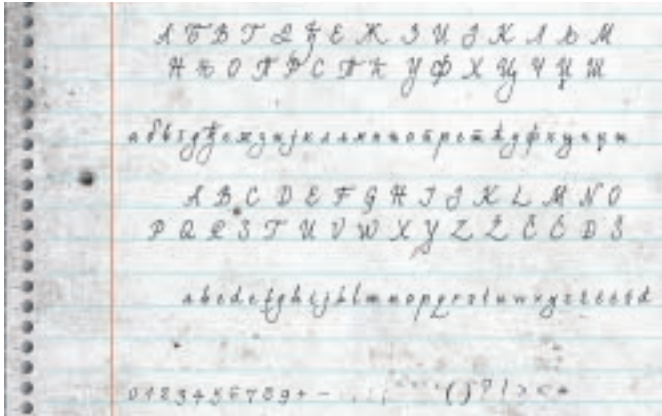 А Б В Г Д Ђ Е Ж З И Ј К Л Љ М
Н Њ О П Р С Т Ћ У Ф Х Ц Ч Џ Ш
а б в г д ђ е ж з и ј к л љ м н њ о п р с т ћ у ф х ц ч џ ш
A B C D E F G H I J K L M N O
P Q R S T U V W X Y Z Ž Č Ć Đ Š
a b c d e f g h i j k l m n o p q r s t u v w x y z ž č ć š đ
0 1 2 3 4 5 6 7 8 9 + - . , : ; " ' ( ) ? ! > < *